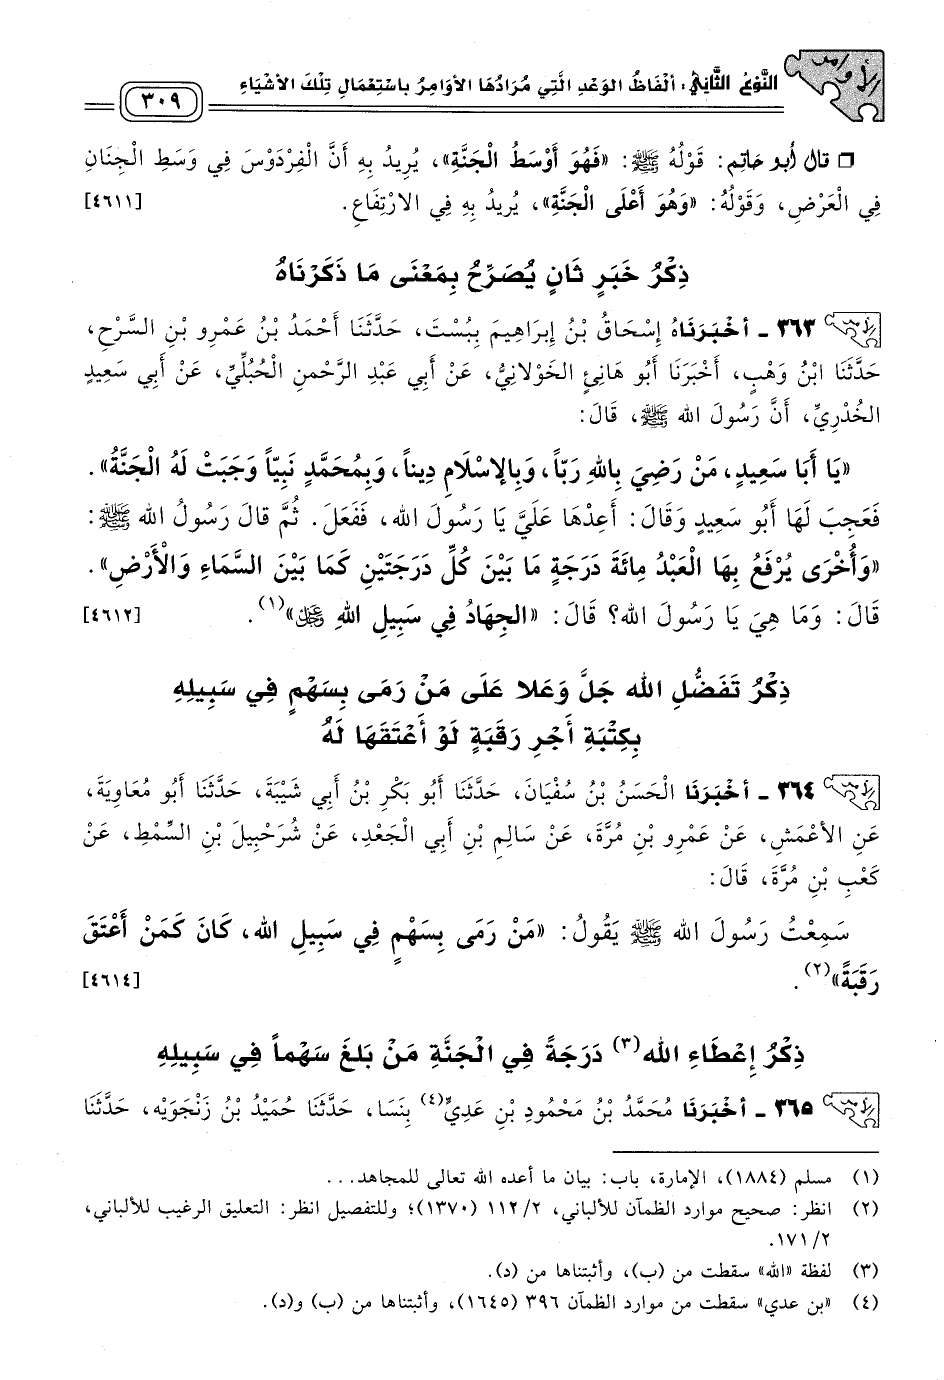 الأوامر
النَّوْعُ الثَّانِي: أَلْفَاظُ الوَعْدِ الَّتِي مُرَادُهَا الأَوَامِرُ بِاسْتِعْمَالِ تِلْكَ الأَشْيَاءِ
٣٠٩
❒ قال أبو حاتم: قَوْلُهُ ﷺ: «فَهُوَ أَوْسَطُ الْجَنَّةِ»، يُرِيدُ بِهِ أَنَّ الْفِرْدَوْسَ فِي وَسَطِ الْجِنَانِ
فِي الْعَرْضِ، وَقَوْلُهُ: «وَهُوَ أَعْلَى الْجَنَّةِ»، يُرِيدُ بِهِ فِي الارْتِفَاعِ. [٤٦١١]
ذِكْرُ خَبَرٍ ثَانٍ يُصَرِّحُ بِمَعْنَى مَا ذَكَرْنَاهُ
٣٦٣ ـ أَخْبَرَنَاهُ إِسْحَاقُ بْنُ إِبْرَاهِيمَ بِبُسْتَ، حَدَّثَنَا أَحْمَدُ بْنُ عَمْرِو بْنِ السَّرْحِ،
حَدَّثَنَا ابْنُ وَهْبٍ، أَخْبَرَنَا أَبُو هَانِئٍ الخَوْلانِيُّ، عَنْ أَبِي عَبْدِ الرَّحْمنِ الْحُبُلِّيِّ، عَنْ أَبِي سَعِيدٍ
الخُدْرِيِّ، أَنَّ رَسُولَ الله ﷺ، قَالَ:
«يَا أَبَا سَعِيدٍ، مَنْ رَضِيَ بِاللهِ رَبّاً، وَبِالإِسْلَامِ دِيناً، وَبِمُحَمَّدٍ نَبِيّاً وَجَبَتْ لَهُ الْجَنَّةُ».
فَعَجِبَ لَهَا أَبُو سَعِيدٍ وَقَالَ: أَعِدْهَا عَلَيَّ يَا رَسُولَ الله، فَفَعَلَ. ثُمَّ قالَ رَسُولُ الله ﷺ:
«وَأُخْرَى يُرْفَعُ بِهَا الْعَبْدُ مِائَةَ دَرَجَةٍ مَا بَيْنَ كُلِّ دَرَجَتَيْنِ كَمَا بَيْنَ السَّمَاءِ وَالْأَرْضِ».
قَالَ: وَمَا هِيَ يَا رَسُولَ الله؟ قَالَ: «الجِهَادُ فِي سَبِيلِ اللهِ ﷻ»(١). [٤٦١٢]
ذِكْرُ تَفَضُّلِ الله جَلَّ وَعَلا عَلَى مَنْ رَمَى بِسَهْمٍ فِي سَبِيلِهِ
بِكِتْبَةِ أَجْرِ رَقَبَةٍ لَوْ أَعْتَقَهَا لَهُ
٣٦٤ ـ أَخْبَرَنَا الْحَسَنُ بْنُ سُفْيَانَ، حَدَّثَنَا أَبُو بَكْرِ بْنُ أَبِي شَيْبَةَ، حَدَّثَنَا أَبُو مُعَاوِيَةَ،
عَنِ الأَعْمَشِ، عَنْ عَمْرِو بْنِ مُرَّةَ، عَنْ سَالِمِ بْنِ أَبِي الْجَعْدِ، عَنْ شُرَحْبِيلَ بْنِ السِّمْطِ، عَنْ
كَعْبِ بْنِ مُرَّةَ، قَالَ:
سَمِعْتُ رَسُولَ الله ﷺ يَقُولُ: «مَنْ رَمَى بِسَهْمٍ فِي سَبِيلِ الله، كَانَ كَمَنْ أَعْتَقَ
رَقَبَةً»(٢). [٤٦١٤]
ذِكْرُ إِعْطَاءِ الله(٣) دَرَجَةً فِي الْجَنَّةِ مَنْ بَلَغَ سَهْماً فِي سَبِيلِهِ
٣٦٥ ـ أَخْبَرَنَا مُحَمَّدُ بْنُ مَحْمُودِ بْنِ عَدِيٍّ(٤) بِنَسَا، حَدَّثَنَا حُمَيْدُ بْنُ زَنْجَوَيْه، حَدَّثَنَا
(١) مسلم (١٨٨٤)، الإمارة، باب: بيان ما أعده الله تعالى للمجاهد...
(٢) انظر: صحيح موارد الظمآن للألباني، ١١٢/٢ (١٣٧٠)؛ وللتفصيل انظر: التعليق الرغيب للألباني،
١٧١/٢.
(٣) لفظة «الله» سقطت من (ب)، وأثبتناها من (د).
(٤) «بن عدي» سقطت من موارد الظمآن ٣٩٦ (١٦٤٥)، وأثبتناها من (ب) و(د).